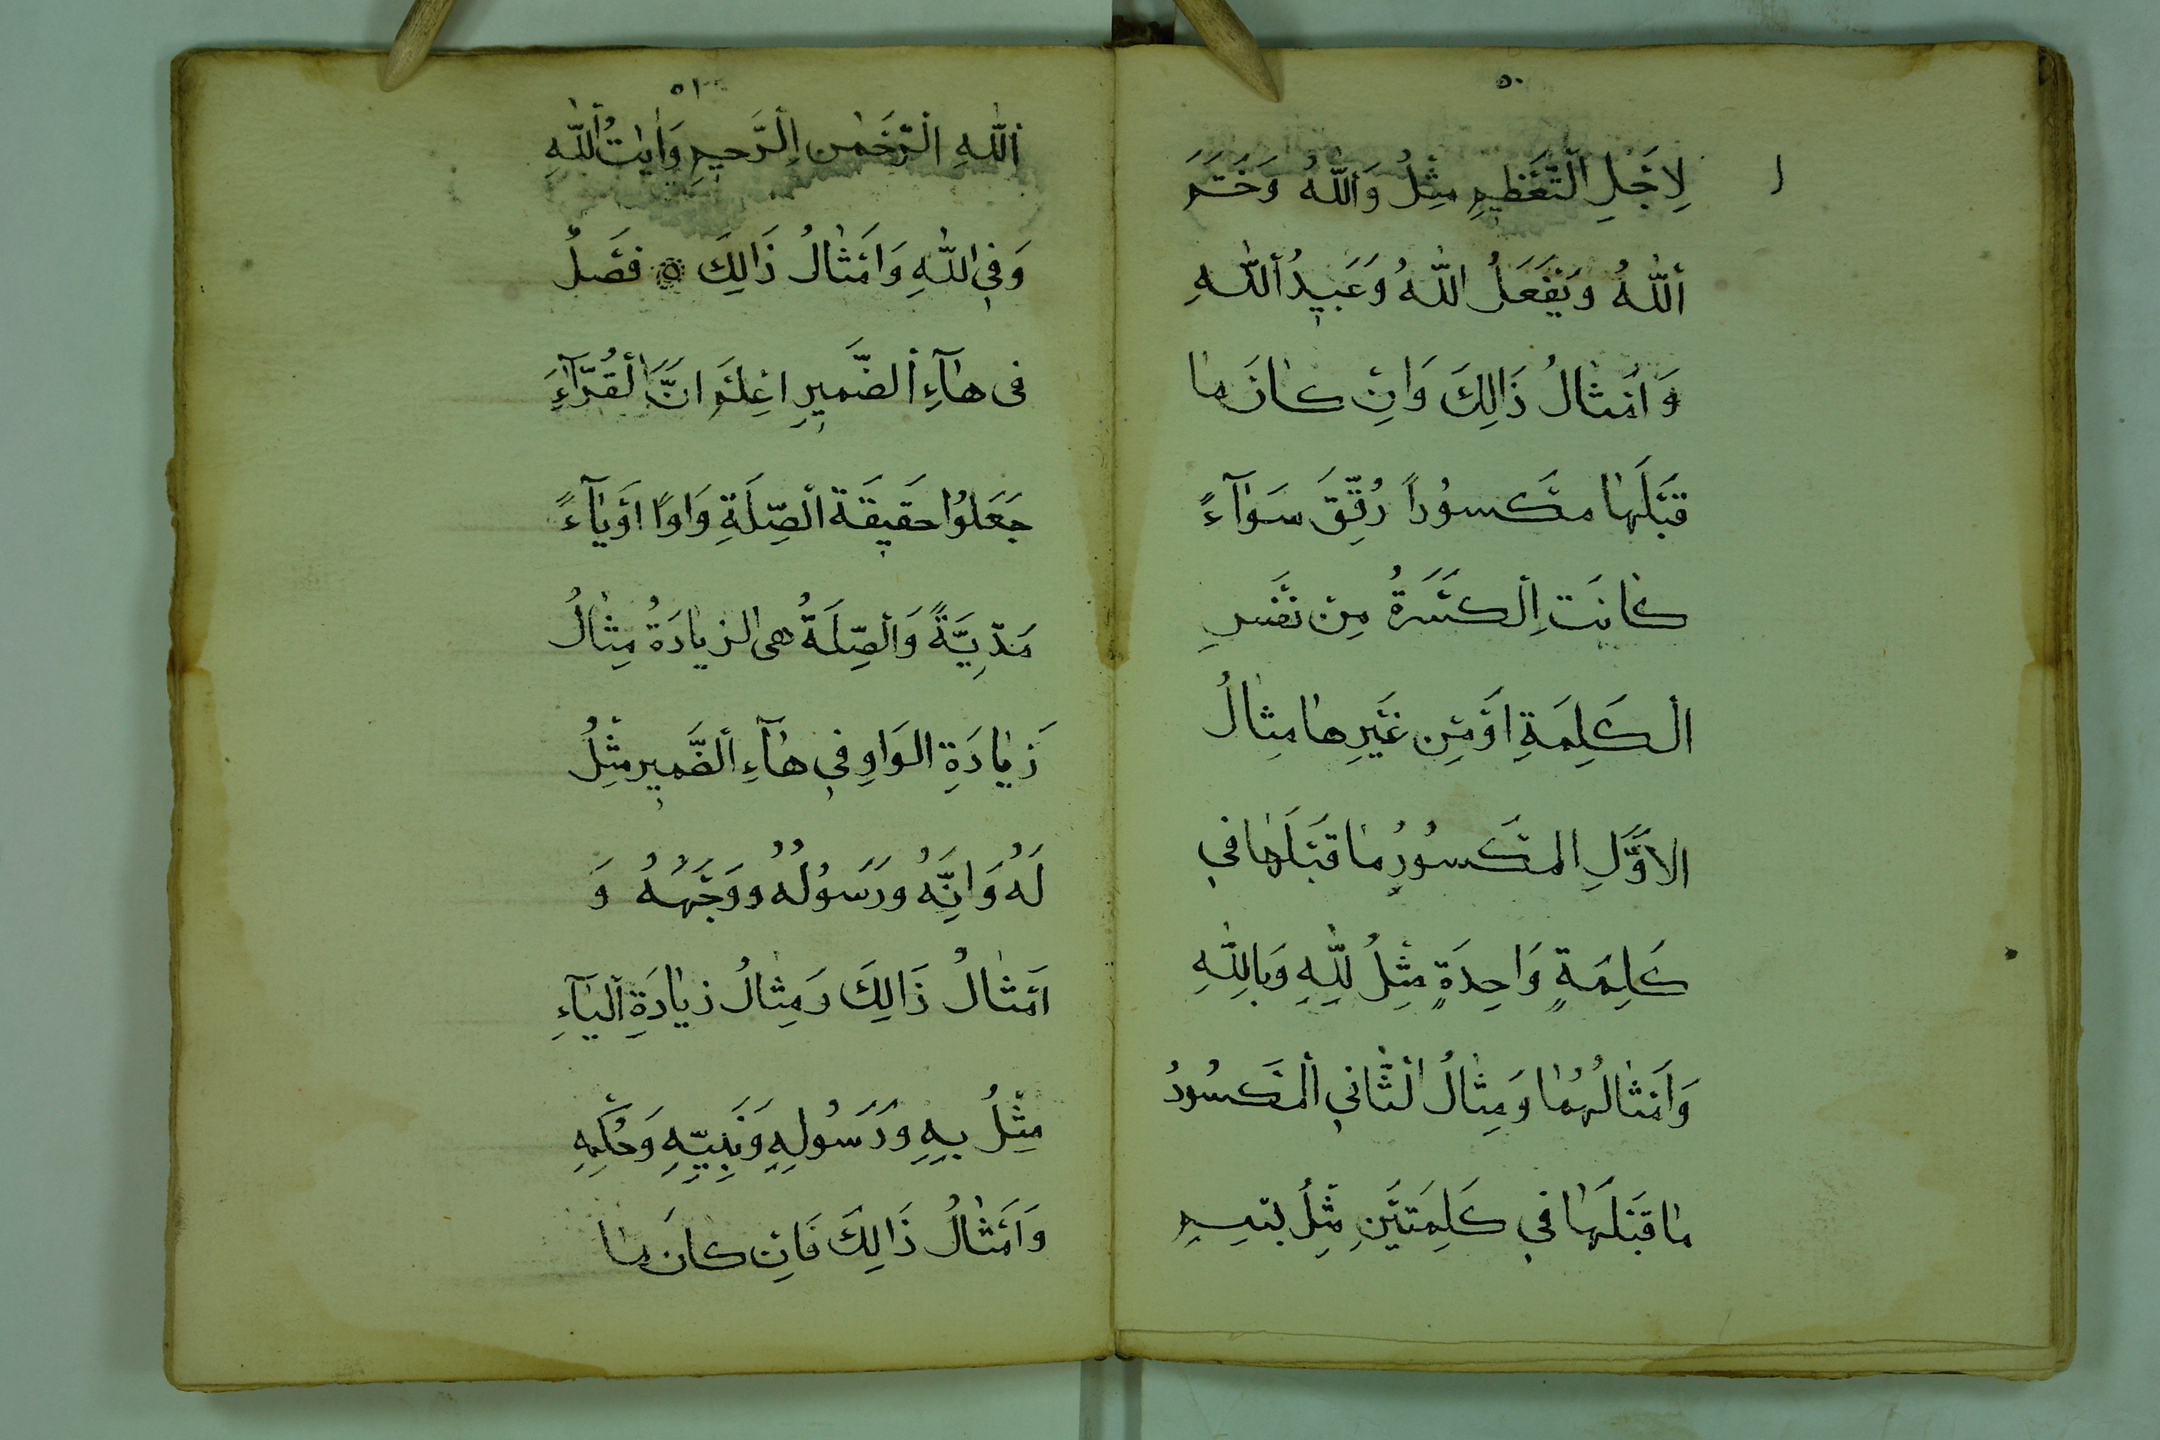 ٥٠
لِاَجْلِ اَلتَّعْظِيمِ مِثْلُ وَاَللّٰهُ وَخَتَمَ
اَللّٰهُ وَيَفْعَلُ اللّٰهُ وَعَبِيدُ اَللّٰهِ
وَاَمْثَالُ ذَالِكَ وَاِنْ كَانَ مَا
قَبْلَهَا مَكْسُوْراً رُقِّقَ سَوَآءً
كَانَتِ اِلْكَسْرَةُ مِنْ نَفْسِ
الْكَلِمَةِ اَوْمِنْ غَيْرِهَا مِثَالُ
الْاَوَّلِ الْمَكْسُوْرُ مَا قَبْلَهَا فِي
كَلِمَةٍ وَاحِدَةٍ مِثْلُ لِلّٰهِ وَبِاللّٰهِ
وَاَمْثَالُهُمَا وَمِثَالُ الْثَّانِي اَلْمَكْسُوْرُ
مَا قَبْلَهَا فِي كَلِمَتَيْنِ مِثْلُ بِسْمِ
٥١
اَللّٰهِ اَلرَّحْمٰنِ اِلرَّحِيمِ وَاٰيَاتُ اَللّٰهِ
وَفِي اللّٰهِ وَاَمْثَالُ ذَالِكَ ۞ فَصْلُ
فى هَآءِ اَلضَّمِيرِ اِعْلَمْ اَنَّ اَلْقُرَّآءَ
جَعَلُوْا حَقِيقَةَ اَلصِّلَةِ وَاوًا اَوْيَآءً
مَدِّيَّةً وَاَلصِّلَةُ هِىَ الزِيَادَةُ مِثَالُ
زِيَادَةِ الوَاوِ فِي هَآءِ اَلضَّمِيرِ مِثْلُ
لَهُ وَاِنَّهُ وَرَسُوْلُهُ وَوَجْهُهُ وَ
اَمْثَالُ ذَالِكَ وَمِثَالُ زِيَادَةِ اَلْيَآءِ
مِثْلُ بِهِ وَرَسُوْلِهِ وَنَبِيِّهِ وَحُكْمِهِ
وَاَمْثَالُ ذَالِكَ فَاِنْ كَانَ مَا